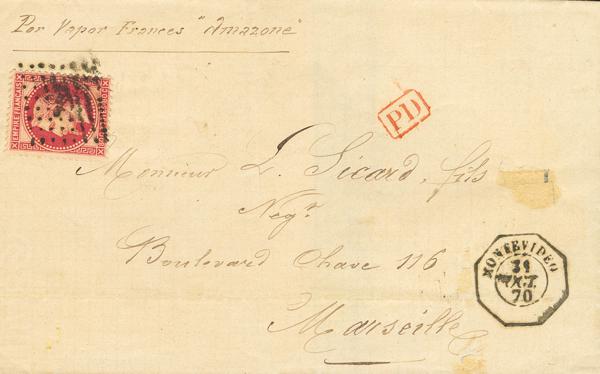 Por Vapor Frances "Amazone"
EMPIRE FRANÇAIS
PD
Monsieur L. Sicard, fils
Negt
Boulevard Chave 116
Marseille
MONTEVIDEO
OCT.
70